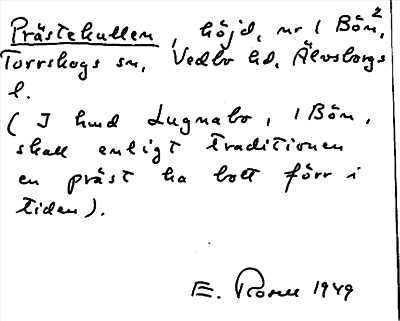 Prästekullen, höjd, nr 1 Bön²,
Torrskogs sn, Vedbo hd, Älvsborgs
l.
( I hmd Lugnabo, 1 Bön,
skall enligt traditionen
en präst ha bott förr i
tiden).
E. Rosell 1949